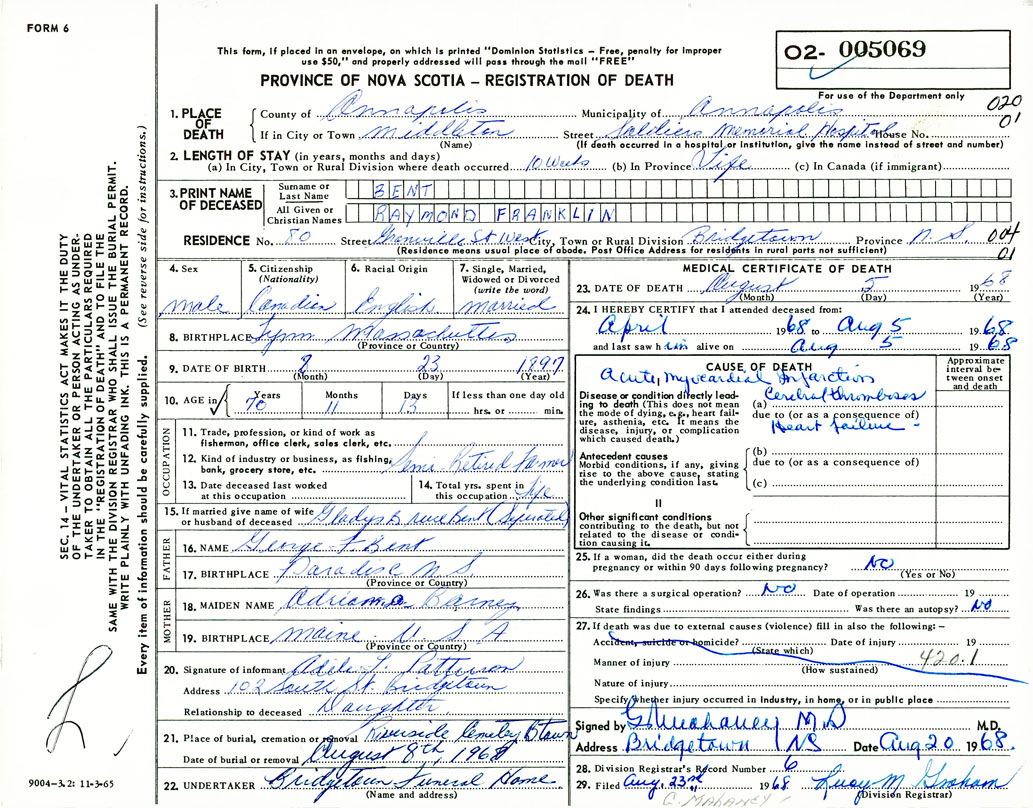 FORM 6
This form, if placed in an envelope, on which is printed "Dominion Statistics – Free, penalty for improper
use $50," and properly addressed will pass through the mail "FREE"
PROVINCE OF NOVA SCOTIA – REGISTRATION OF DEATH
02- 005069
For use of the Department only
020
01
1. PLACE OF DEATH
County of Annapolis Municipality of Annapolis
If in City or Town Middleton Street Soldiers Memorial Hospital House No.
(Name) (If death occurred in a hospital or institution, give the name instead of street and number)
2. LENGTH OF STAY (in years, months and days)
(a) In City, Town or Rural Division where death occurred 10 Weeks (b) In Province Life (c) In Canada (if immigrant)
3. PRINT NAME OF DECEASED
Surname or Last Name BENT
All Given or Christian Names RAYMOND FRANKLIN
RESIDENCE No. 80 Street Granville St West City, Town or Rural Division Bridgetown Province N.S. 004
(Residence means usual place of abode. Post Office Address for residents in rural parts not sufficient) 01
4. Sex male
5. Citizenship (Nationality) Canadian
6. Racial Origin English
7. Single, Married, Widowed or Divorced (write the word) married
8. BIRTHPLACE Lynn Massachuttes
(Province or Country)
9. DATE OF BIRTH 8 23 1897
(Month) (Day) (Year)
10. AGE in Years 70 Months 11 Days 13 If less than one day old hrs. or min.
OCCUPATION
11. Trade, profession, or kind of work as fisherman, office clerk, sales clerk, etc.
12. Kind of industry or business, as fishing, bank, grocery store, etc. Semi-Retired Farmer
13. Date deceased last worked at this occupation
14. Total yrs. spent in this occupation Life
15. If married give name of wife or husband of deceased Gladys Bent (Seperated)
FATHER
16. NAME George F Bent
17. BIRTHPLACE Paradise N S
(Province or Country)
MOTHER
18. MAIDEN NAME Barney
19. BIRTHPLACE Maine U. S A
(Province or Country)
20. Signature of informant Adele L. Patterson
Address 102 South St. Bridgetown
Relationship to deceased Daughter
21. Place of burial, cremation or removal Riverside Cemetey B'town
Date of burial or removal August 8th, 1968
22. UNDERTAKER Bridgetown Funeral Home
(Name and address)
MEDICAL CERTIFICATE OF DEATH
23. DATE OF DEATH August 5 1968
(Month) (Day) (Year)
24. I HEREBY CERTIFY that I attended deceased from:
April 1968 to Aug 5 1968
and last saw him alive on Aug 5 1968
CAUSE OF DEATH
Approximate interval between onset and death
Acute Myocardial Infarction
Disease or condition directly leading to death (This does not mean the mode of dying, e.g., heart failure, asthenia, etc. It means the disease, injury, or complication which caused death.)
(a) Cerebral thromboses
due to (or as a consequence of)
Heart failure -
Antecedent causes
Morbid conditions, if any, giving rise to the above cause, stating the underlying condition last.
(b)
due to (or as a consequence of)
(c)
II
Other significant conditions contributing to the death, but not related to the disease or condition causing it.
25. If a woman, did the death occur either during pregnancy or within 90 days following pregnancy? No
(Yes or No)
26. Was there a surgical operation? No Date of operation 19
State findings Was there an autopsy? No
27. If death was due to external causes (violence) fill in also the following: –
Accident, suicide or homicide? Date of injury 19
(State which)
Manner of injury 420.1
(How sustained)
Nature of injury
Specify whether injury occurred in industry, in home, or in public place
Signed by Mahaney M D M.D.
Address Bridgetown NS Date Aug 20 1968.
28. Division Registrar's Record Number 6
29. Filed Aug. 23rd 1968 Lucy M. Graham
(Division Registrar)
G. MAHANEY
SEC. 14 – VITAL STATISTICS ACT MAKES IT THE DUTY
OF THE UNDERTAKER OR PERSON ACTING AS UNDER-
TAKER TO OBTAIN ALL THE PARTICULARS REQUIRED
IN THE "REGISTRATION OF DEATH" AND TO FILE THE
SAME WITH THE DIVISION REGISTRAR WHO SHALL ISSUE THE BURIAL PERMIT.
WRITE PLAINLY WITH UNFADING INK. THIS IS A PERMANENT RECORD.
Every item of information should be carefully supplied. (See reverse side for instructions.)
9004-3.2: 11-3-65